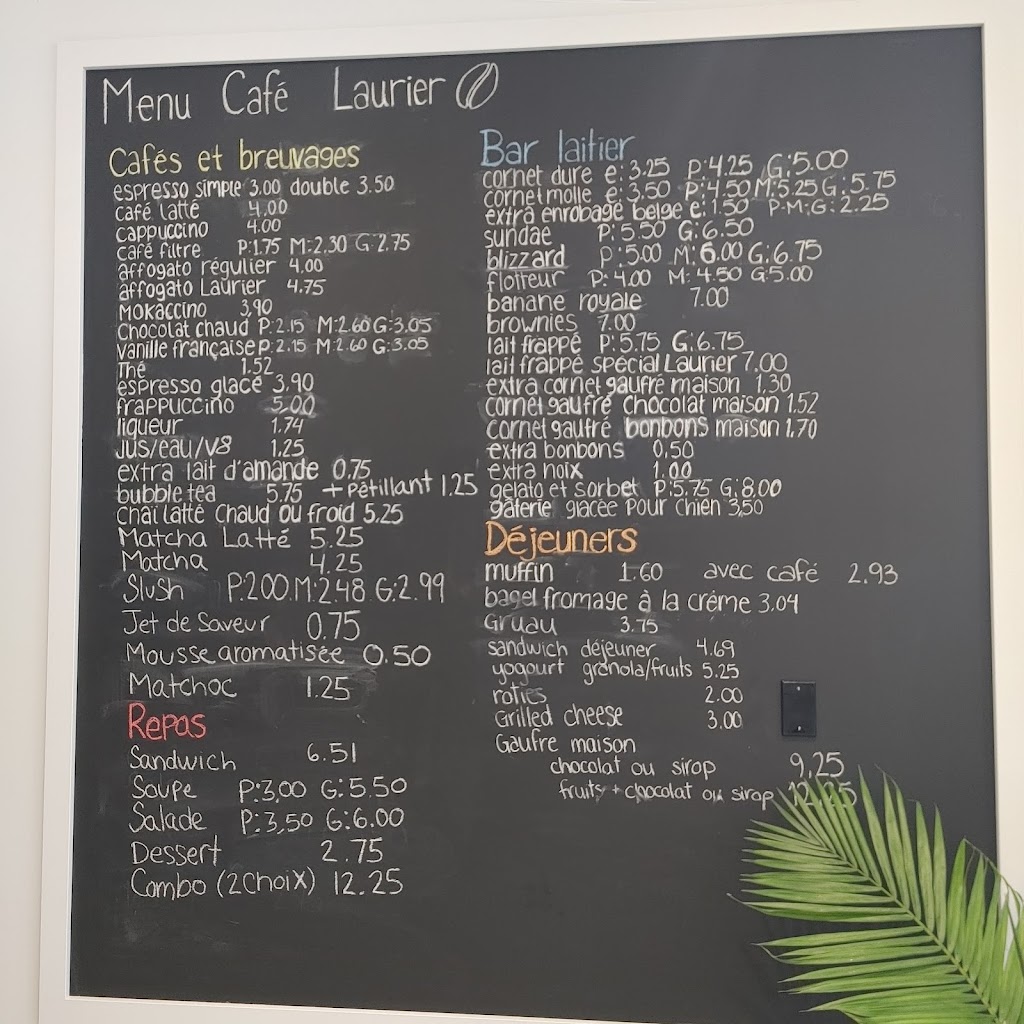 Menu Café Laurier
Cafés et breuvages
espresso simple 3.00 double 3.50
café latté 4.00
cappuccino 4.00
café filtre P:1.75 M:2.30 G:2.75
affogato régulier 4.00
affogato Laurier 4.75
Mokaccino 3,90
Chocolat chaud P:2.15 M:2.60 G:3.05
Vanille française P:2.15 M:2.60 G:3.05
Thé 1.52
espresso glacé 3,90
frappuccino 5,00
liqueur 1.74
Jus/eau/V8 1,25
extra lait d'amande 0,75
bubble tea 5.75 + Pétillant 1.25
Chai latté Chaud ou froid 5.25
Matcha Latté 5.25
Matcha 4,25
Slush P:2.00 M:2.48 G:2.99
Jet de Saveur 0.75
Mousse aromatisée 0.50
Matchoc 1.25
Repas
Sandwich 6.51
Soupe P:3,00 G:5.50
Salade P:3,50 G:6.00
Dessert 2.75
Combo (2 Choix) 12.25
Bar laitier
cornet dure e: 3.25 P:4.25 G:5.00
cornet molle e: 3,50 P:4.50 M:5.25 G:5.75
extra enrobage belge e: 1.50 P-M-G: 2.25
sundae P:5.50 G:6.50
blizzard P:5.00 M:6.00 G:6.75
flotteur P:4.00 M:4.50 G:5.00
banane royale 7.00
brownies 7.00
lait frappé P:5.75 G:6.75
lait frappé spécial Laurier 7.00
extra cornet gaufré maison 1.30
cornet gaufré chocolat maison 1.52
cornet gaufré bonbons maison 1.70
extra bonbons 0,50
extra noix 1.00
gelato et sorbet P:5.75 G:8.00
gâterie glacée Pour Chien 3,50
Déjeuners
muffin 1.60 avec café 2.93
bagel fromage à la crème 3.04
Gruau 3.75
sandwich déjeuner 4.69
yogourt grénola/fruits 5.25
roties 2.00
Grilled cheese 3.00
Gaufre maison
chocolat ou sirop 9,25
fruits + chocolat ou sirop